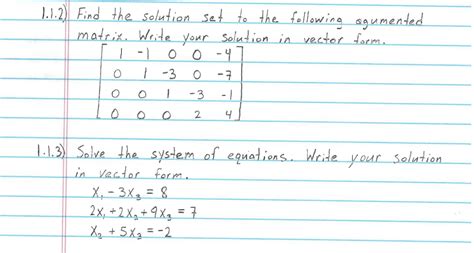 1.1.2) Find the solution set to the following agumented
matrix. Write your solution in vector form.
1 -1 0 0 -4
0 1 -3 0 -7
0 0 1 -3 -1
0 0 0 2 4
1.1.3) Solve the system of equations. Write your solution
in vector form.
x₁ - 3x₃ = 8
2x₁ + 2x₂ + 9x₃ = 7
x₂ + 5x₃ = -2